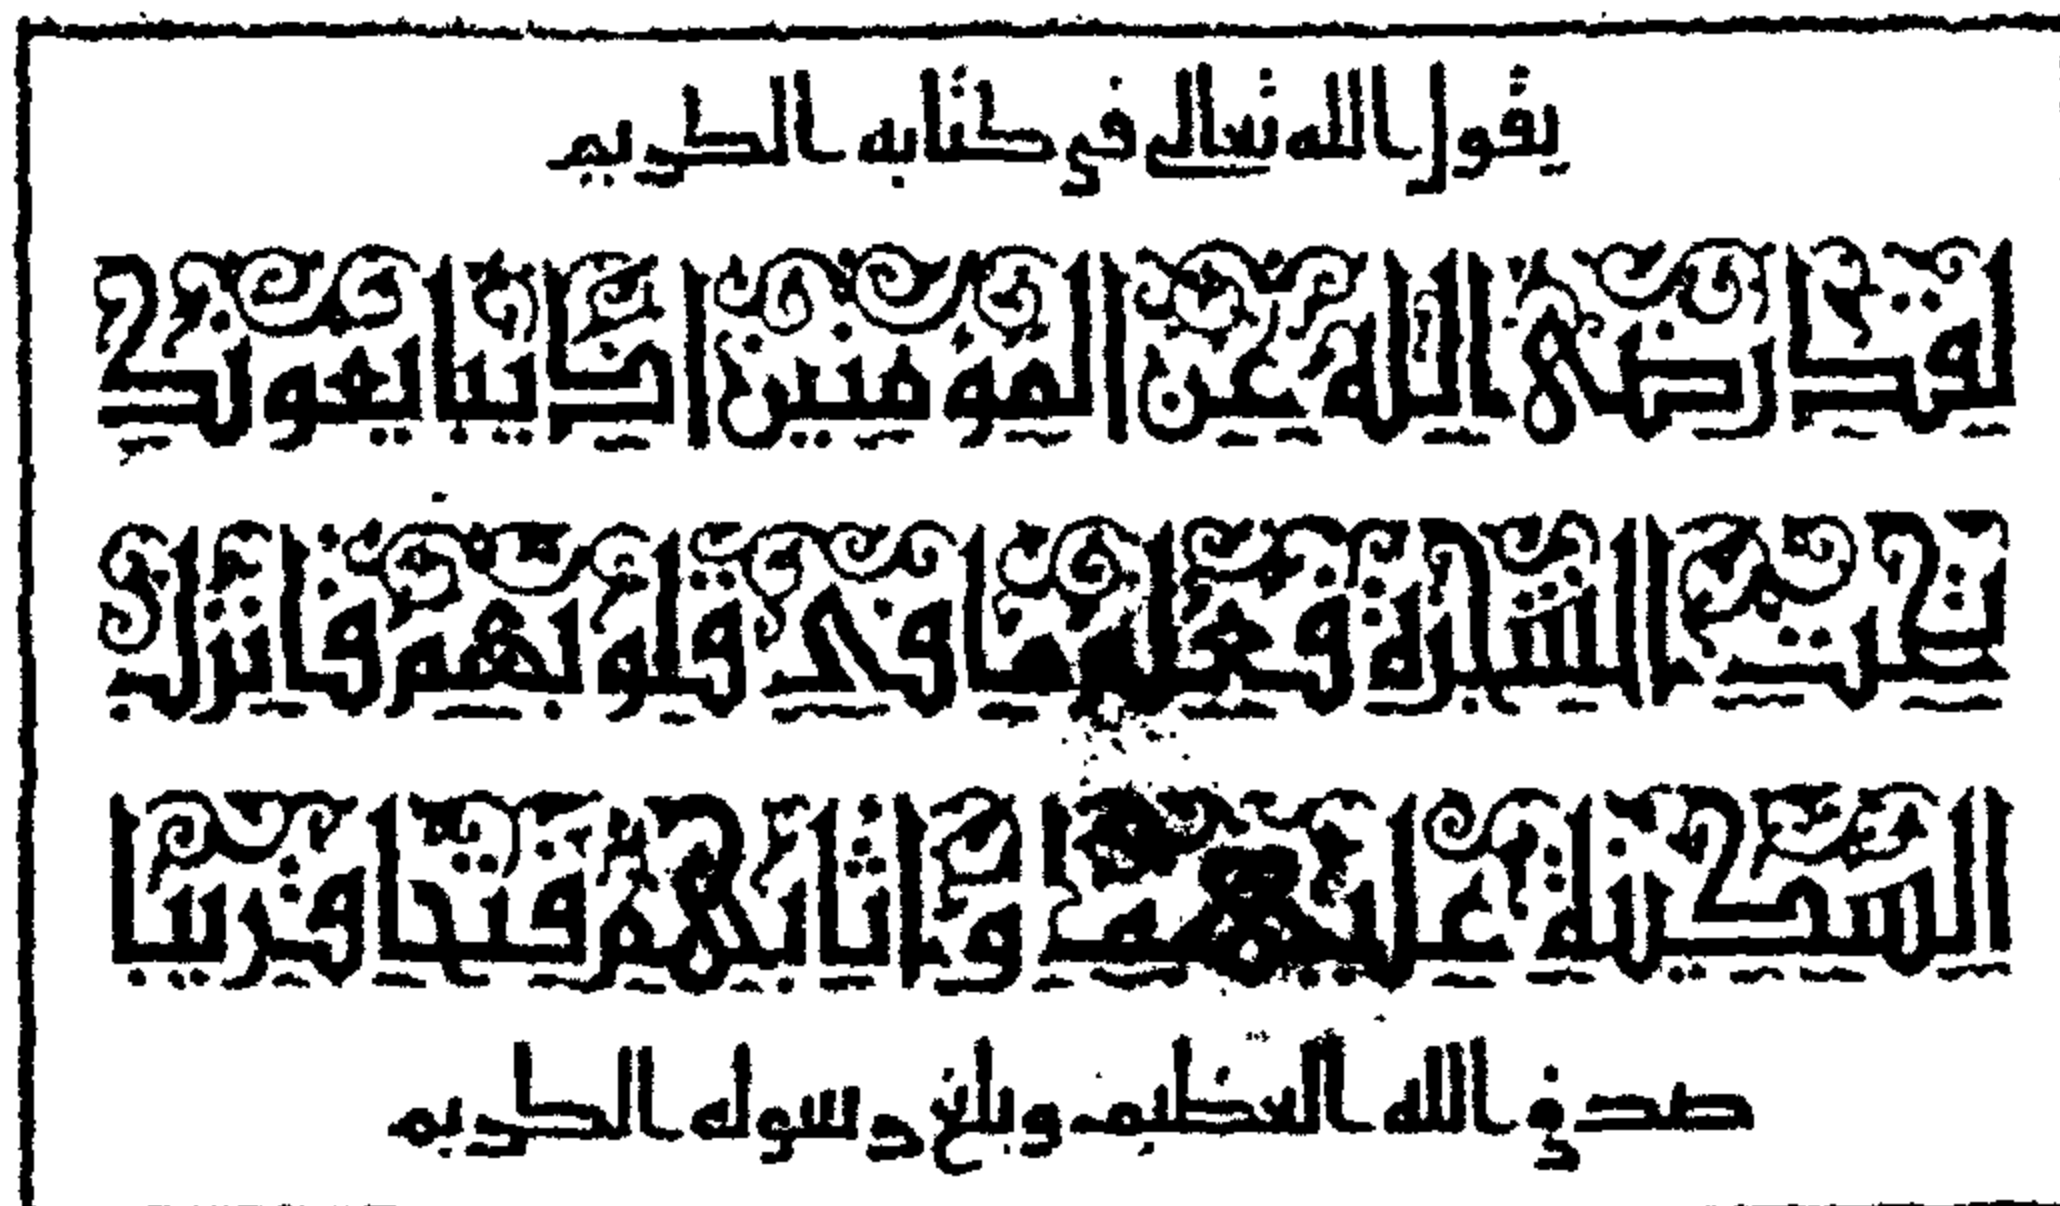 يقول الله تعالى في كتابه الكريم
لقد رضى الله عن المؤمنين اذ يبايعونك
تحت الشجرة فعلم ما فى قلوبهم فانزل
السكينة عليهم و اثابهم فتحا قريبا
صدق الله العظيم وبلغ رسوله الكريم